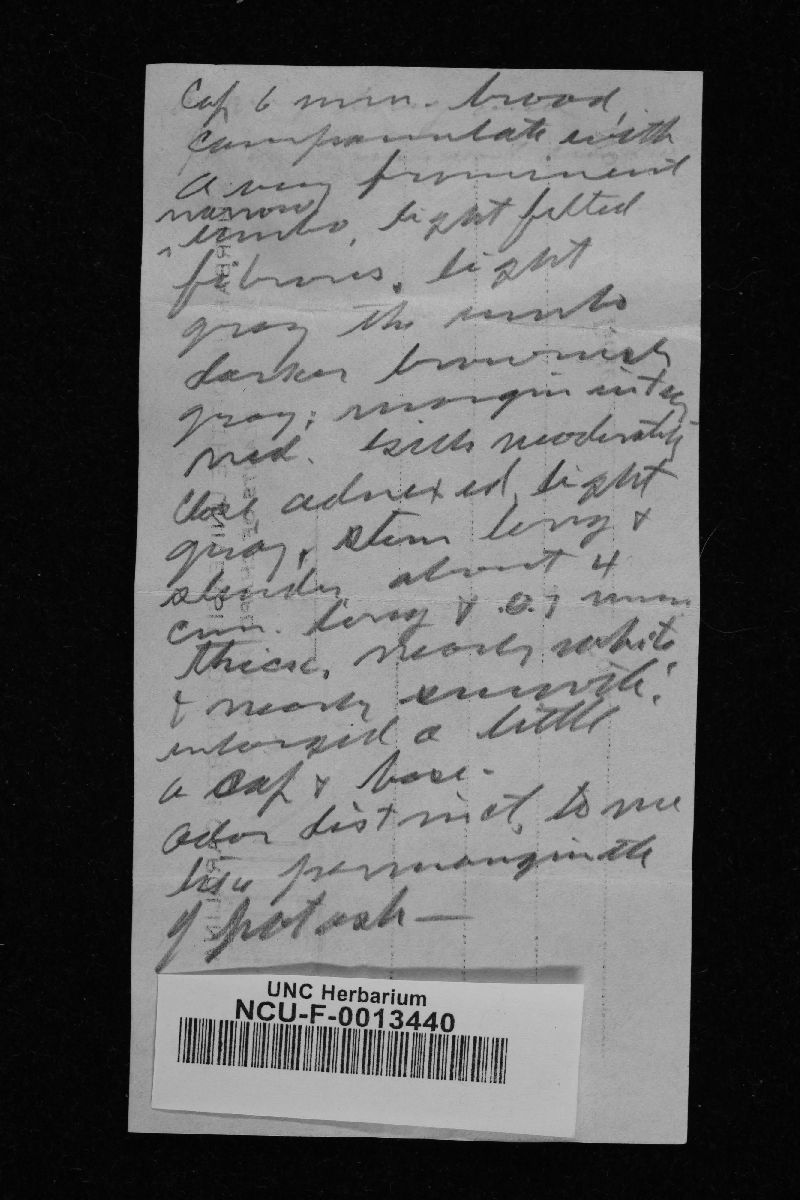 Cap 6 mm. broad,
campanulate with
a very prominent
narrow
^ umbo, light felted
fibrous, light
gray the umbo
darker brownish
gray; margin
Gills moderately
close adnexed, light
gray, stem long &
slender about 4
cm. long & 0.7 mm
thick, nearly white
& nearly smooth;
enlarged a little
a cap & base.
Odor distinct, to me
like permanginate
of potash —
UNC Herbarium
NCU-F-0013440